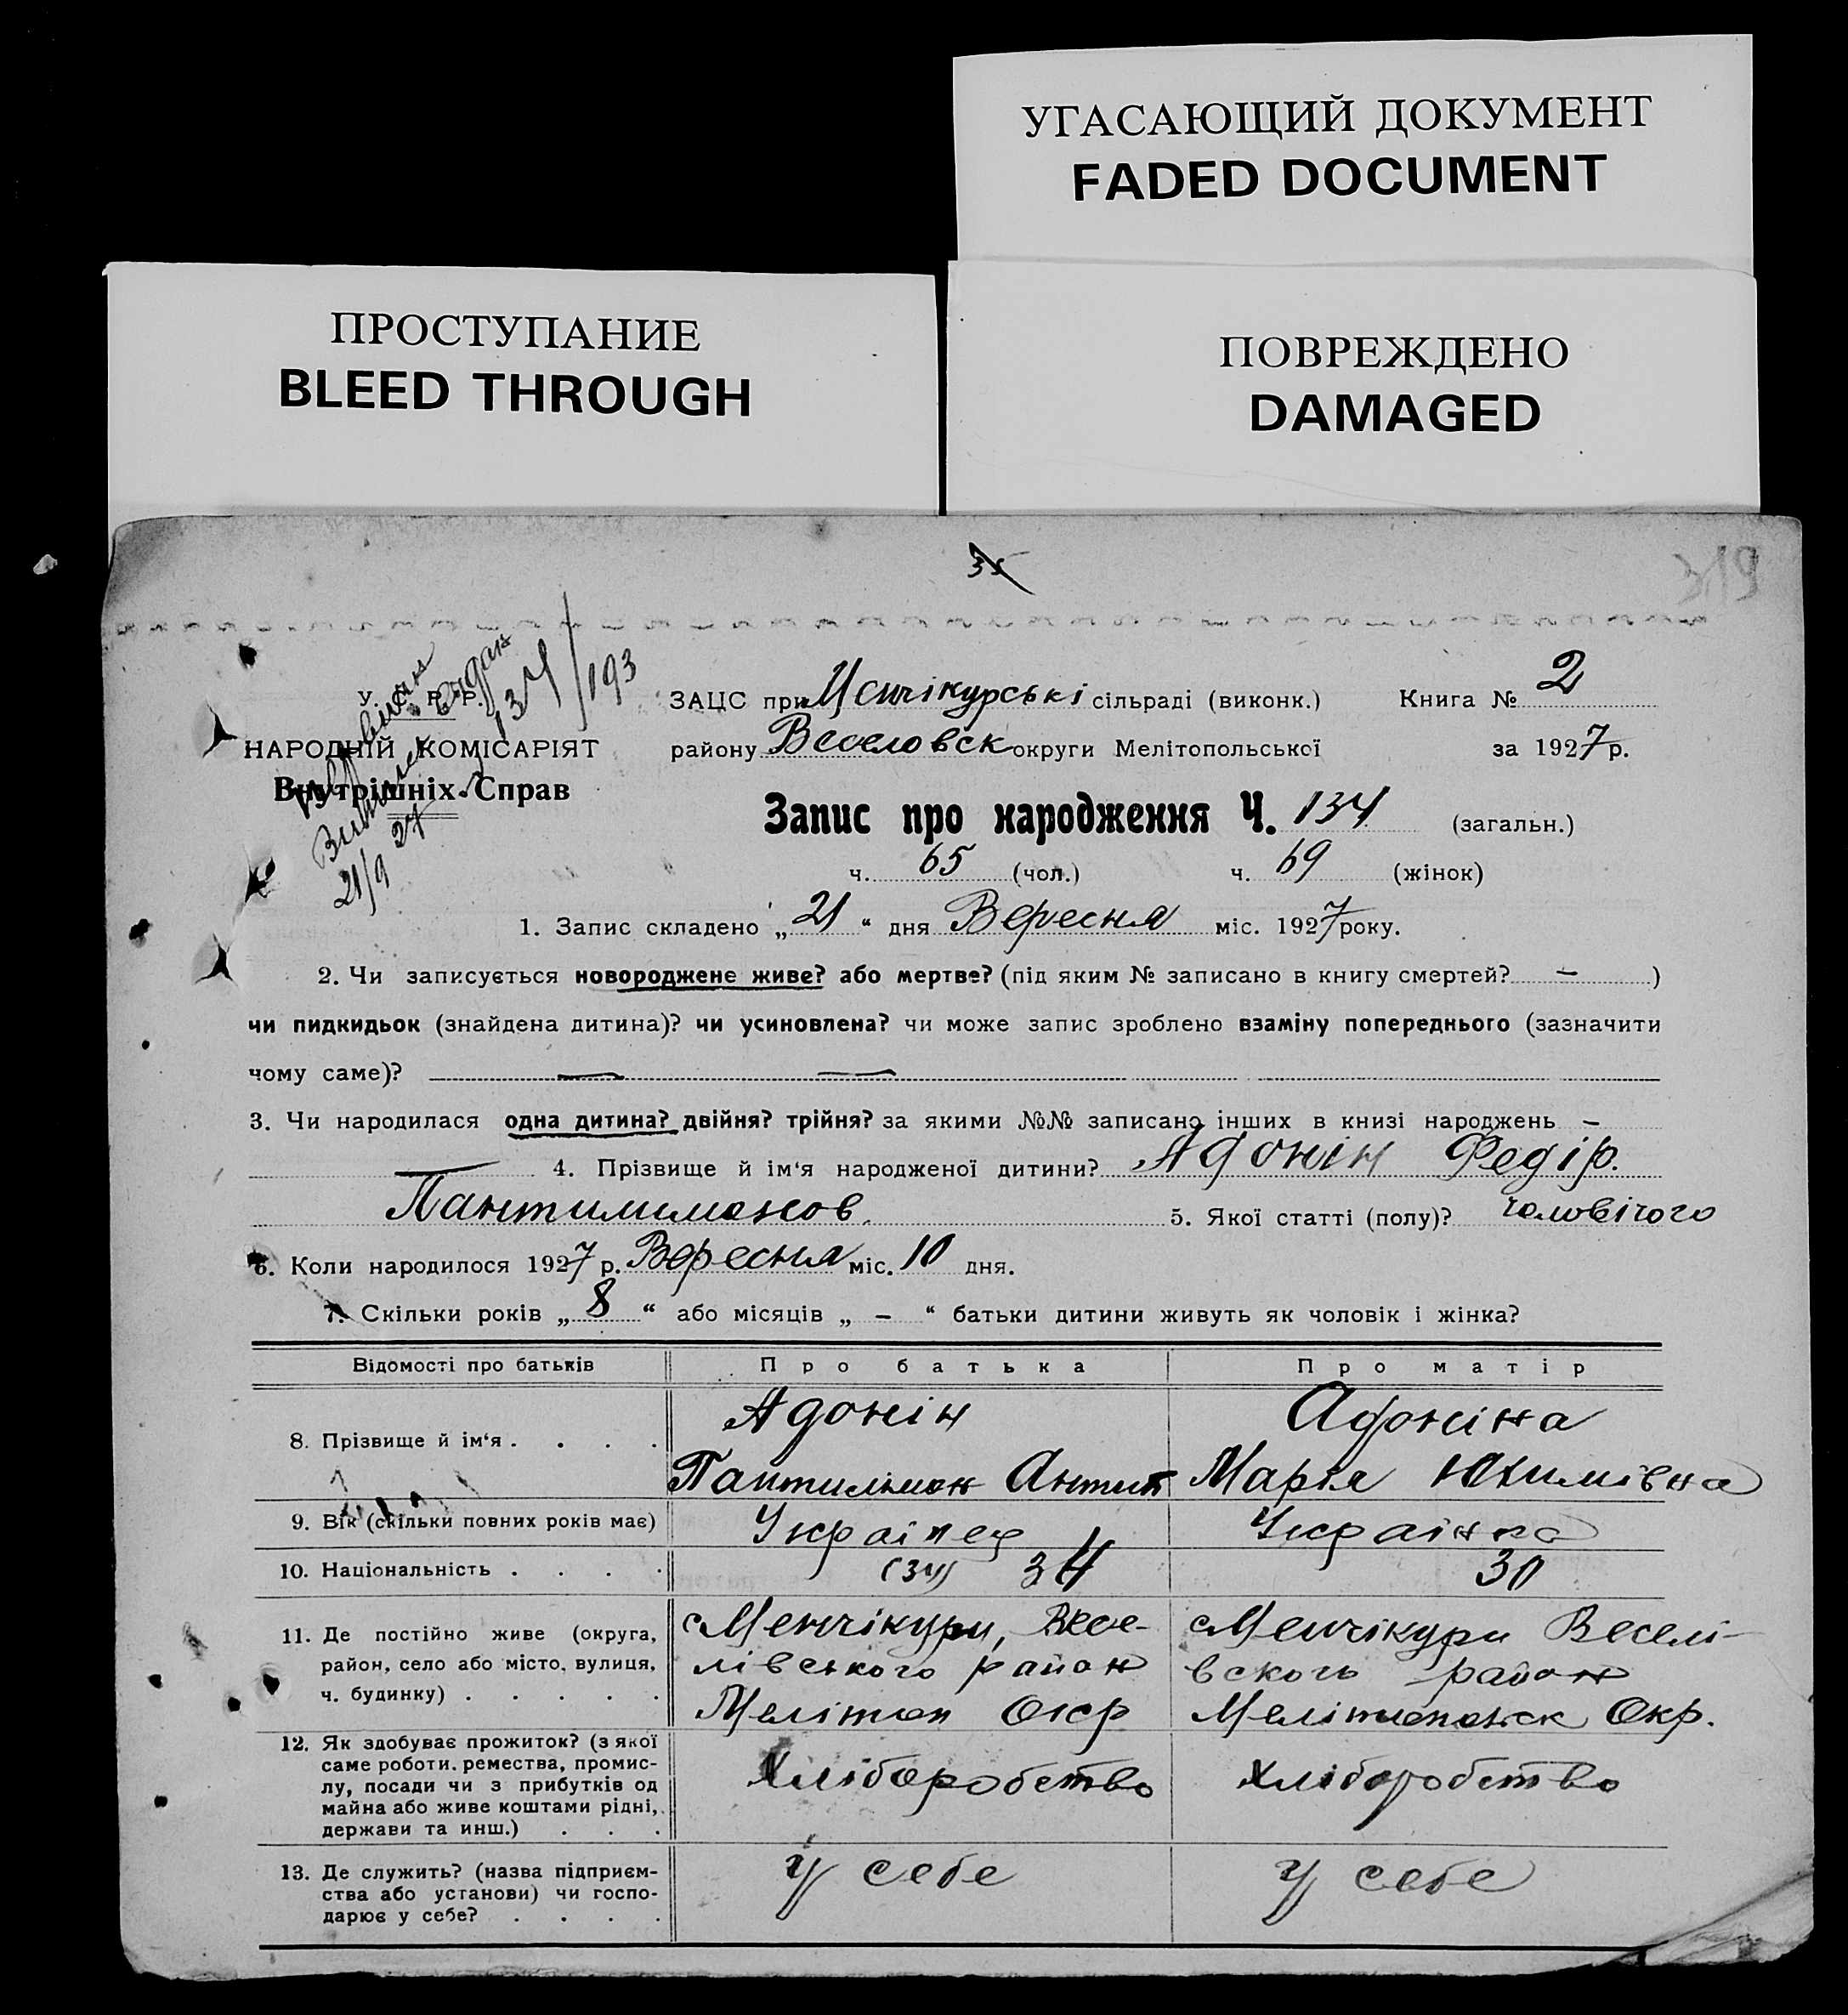 УГАСАЮЩИЙ ДОКУМЕНТ
FADED DOCUMENT
ПРОСТУПАНИЕ
BLEED THROUGH
ПОВРЕЖДЕНО
DAMAGED
35
319
134/193
21/9 27
У. С. Р. Р.
НАРОДНІЙ КОМІСАРІЯТ
Внутрішніх Справ
ЗАЦС при Менчікурські сільраді (виконк.) Книга № 2
району Веселовск округи Мелітопольської за 1927 р.
Запис про народження Ч. 134 (загальн.)
ч. 65 (чол.) ч. 69 (жінок)
1. Запис складено „ 21 “ дня Вересня міс. 1927 року.
2. Чи записується новороджене живе? або мертве? (під яким № записано в книгу смертей? — )
чи пидкидьок (знайдена дитина)? чи усиновлена? чи може запис зроблено взаміну попереднього (зазначити
чому саме)? — —
3. Чи народилася одна дитина? двійня? трійня? за якими №№ записано інших в книзі народжень —
— 4. Прізвище й ім‘я народженої дитини? Адонін Федір.
Пантилимонов. 5. Якої статті (полу)? чоловічого
6. Коли народилося 1927 р. Вересня міс. 10 дня.
7. Скільки років „ 8 “ або місяців „ — “ батьки дитини живуть як чоловік і жінка?
Відомості про батьків Про батька Про матір
8. Прізвище й ім‘я . . . . Адонін Адоніна
Пантилімон Антип Марія Юхимівна
9. Вік (скільки повних років має) Украінец Украінка
10. Національність . . . . (34) 34 30
11. Де постійно живе (округа, Менчікури, Весе- Менчікури Веселі-
район, село або місто, вулиця, лівського район вского район
ч. будинку) . . . . . Мелітоп Окр Мелітопольск Окр.
12. Як здобуває прожиток? (з якої
саме роботи, ремества, промис-
лу, посади чи з прибутків од Хліборобство Хліборобство
майна або живе коштами рідні,
держави та инш.) . . .
13. Де служить? (назва підприєм- у себе у себе
ства або установи) чи госпо-
дарює у себе? . . . .